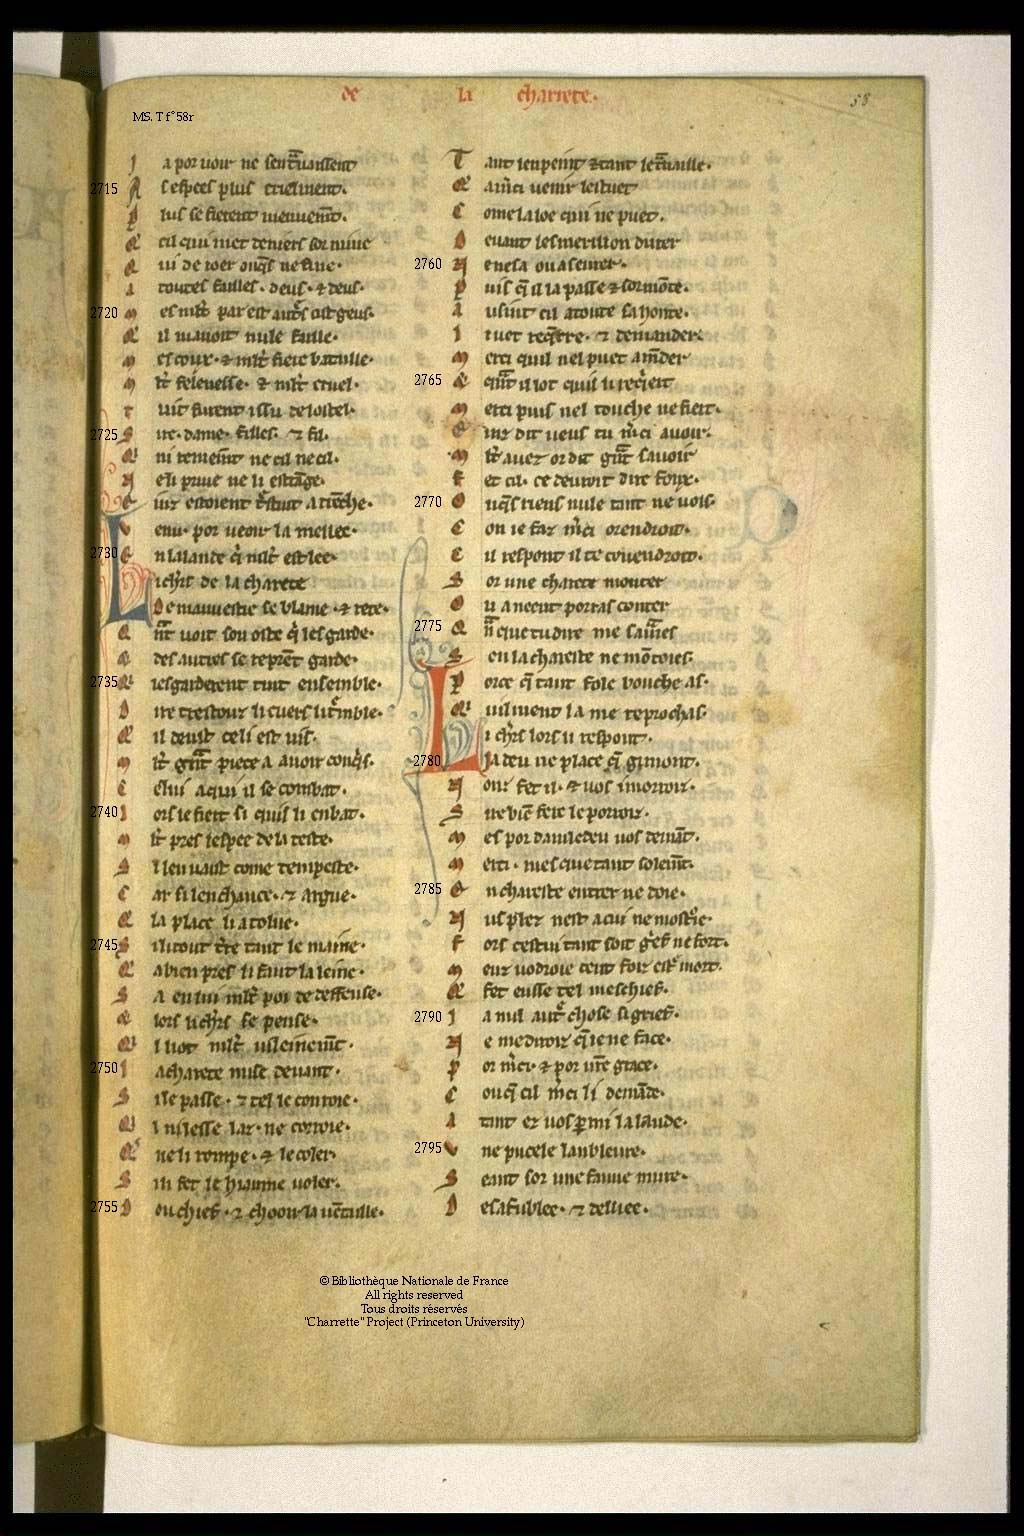 de la charrete.
58
MS. T f° 58r
J a por uoir ne sentruaissent
2715 A s espees plus cruelment.
P lus se fierent menuement.
Et cil qui met deniers sor mine
Q ui de ioer onques ne fine.
A toutes failles. deus. & deus.
2720 M es mlt par est autres cist geus.
Q il ni auoit nule faille.
M es coux. & mlt fiere bataille.
M lt felenesse. & mlt cruel.
T uit furent issu de lostel.
2725 S ire. dame. filles. & fil.
Q ni remeint ne cil ne cil.
N e li priue ne li estrange.
E inz estoient trestuit a renche.
V enu. por ueoir la mellee.
2730 E n la lande qi mlt est lee.
L i chrs de la charete
De mauuestie se blame. & rete.
Q nt uoit son oste qi les garde.
E des autres se reprent garde.
2735 Q ies garderent tuit ensemble.
D ire trestouz li cuers li tremble.
Q il deust ce li est uis.
M lt grant piece a auoir conqis.
C elui a qui il se combat.
2740 L ors le fiert si quil li enbat.
M lt pres lespee de la teste.
S i len uait come tempeste.
C ar si lenchauce. & argue.
Q la place li a tolue.
2745 S i li tout terre tant le maine.
Q a bien pres li faut laleine.
S a en lui mlt poi de deffense.
E lors li chrs se pense.
Q l li ot mlt uileinement.
2750 L a charete mise deuant.
S i le passe. & tel le conroie.
Q l ni lesse laz. ne corroie.
Q ne li rompe. & le coler.
S i li fet le hiaume uoler.
2755 D ou chief. & cheoir la uentaille.
T ant lenpeint & tant le trauaille.
Q a mci uenir lestuet
C ome laloe qui ne puet.
D euant lesmerillon durer
2760 N e ne sa ou aseurer.
P uis qe il la passe & sormonte.
A usint cil a toute sa honte.
L i uet reqerre. & demander.
M erci quil nel puet amender
2765 E qunt il ot quil li reqiert
M erci puis nel touche ne fiert.
E inz dit ueus tu mci auoir.
M lt auez or dit grant sauoir
F et cil. ce deuroit dire fox.
2770 O nqes riens nule tant ne uols.
C on ie faz mci orendroit.
C il respont il te couendroit.
S or une charete monter
O u a neent porras conter
2775 Q nque tu dire me sauries
S en la chareste ne montoies.
P orce qe tant fole bouche as.
Q uilment la me reprochas.
L i chrs lors li respont.
2780 Ja deu ne place qe gi mont.
N on fet il. & uos i morroiz.
S ire bien fere le porroiz.
M es por damledeu uos demant.
M erci. mes que tant solement.
2785 E n chareste entrer ne doie.
N us plez nest a cui ne mostroie.
F ors cestui tant soit gref ne fort.
M euz uodroie cent foiz estre mort.
Q fet eusse cel meschief.
2790 J a nul autre chose si grief.
N e me diroiz qe ie ne face.
P or mci. & por ure grace.
C ou qe cil mci li demande.
A tant ez uos pmi la lande.
2795 V ne pucele lanbleure.
S eant sor une fauue mure.
D esafublee. & desliee.
©Bibliothèque Nationale de France
All rights reserved
Tous droits réservés
"Charrette" Project (Princeton University)